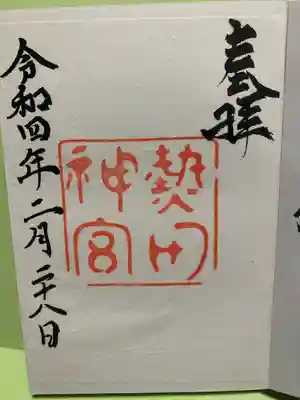 奉拝
熱田
神宮
令和四年二月二十八日